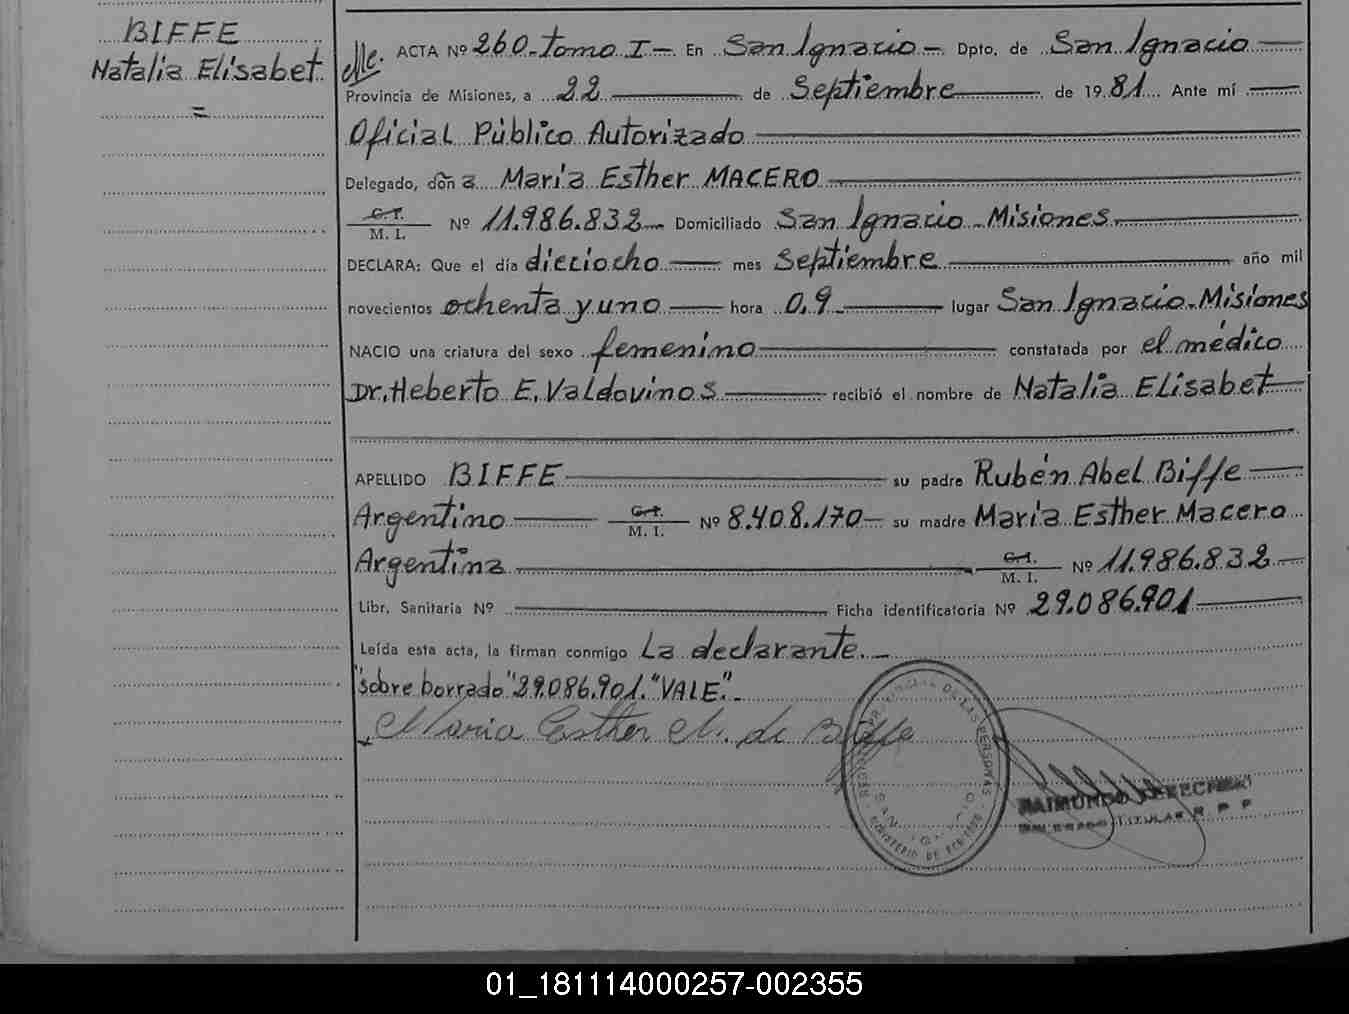 BIFFE
Natalia Elisabet
=
ACTA Nº 260 - Tomo I - En San Ignacio - Dpto. de San Ignacio
Provincia de Misiones, a 22 de Septiembre de 1981 Ante mí
Oficial Público Autorizado
Delegado, doña María Esther MACERO
C. I.
M. I. Nº 11.986.832 - Domiciliado San Ignacio - Misiones
DECLARA: Que el día dieciocho mes Septiembre año mil
novecientos ochenta y uno hora 0,9 lugar San Ignacio - Misiones
NACIO una criatura del sexo femenino constatada por el médico
Dr. Heberto E. Valdovinos recibió el nombre de Natalia Elisabet
APELLIDO BIFFE su padre Rubén Abel Biffe
Argentino C. I. M. I. Nº 8.408.170 - su madre María Esther Macero
Argentina C. I. M. I. Nº 11.986.832
Libr. Sanitaria Nº Ficha identificatoria Nº 29.086.901
Leída esta acta, la firman conmigo La declarante. -
"sobre borrado" 29.086.901. "VALE". -
Maria Esther M. de Biffe
PROVINCIAL DE LAS PERSONAS
SAN IGNACIO
MINISTERIO DE GOBIERNO
RAIMUNDO
TITULAR R. P. P.
01_181114000257-002355